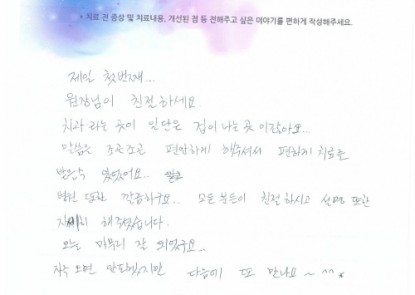 * 치료 전 증상 및 치료내용, 개선된 점 등 전해주고 싶은 이야기를 편하게 작성해주세요.
제일 첫번째...
원장님이 친절하세요
치과라는 곳이 일단은 겁이 나는 곳이잖아요..
말씀을 조근조근 편안하게 해주셔서 편하게 치료를
받을수 있었어요..
병원 또한 깔끔하구요.. 모든 분들이 친절하시고 설명 또한
자세히 해주셨습니다.
오늘 마무리 잘 되었구요..
자주 오면 안되겠지만 다음에 또 만나요~ ^^*